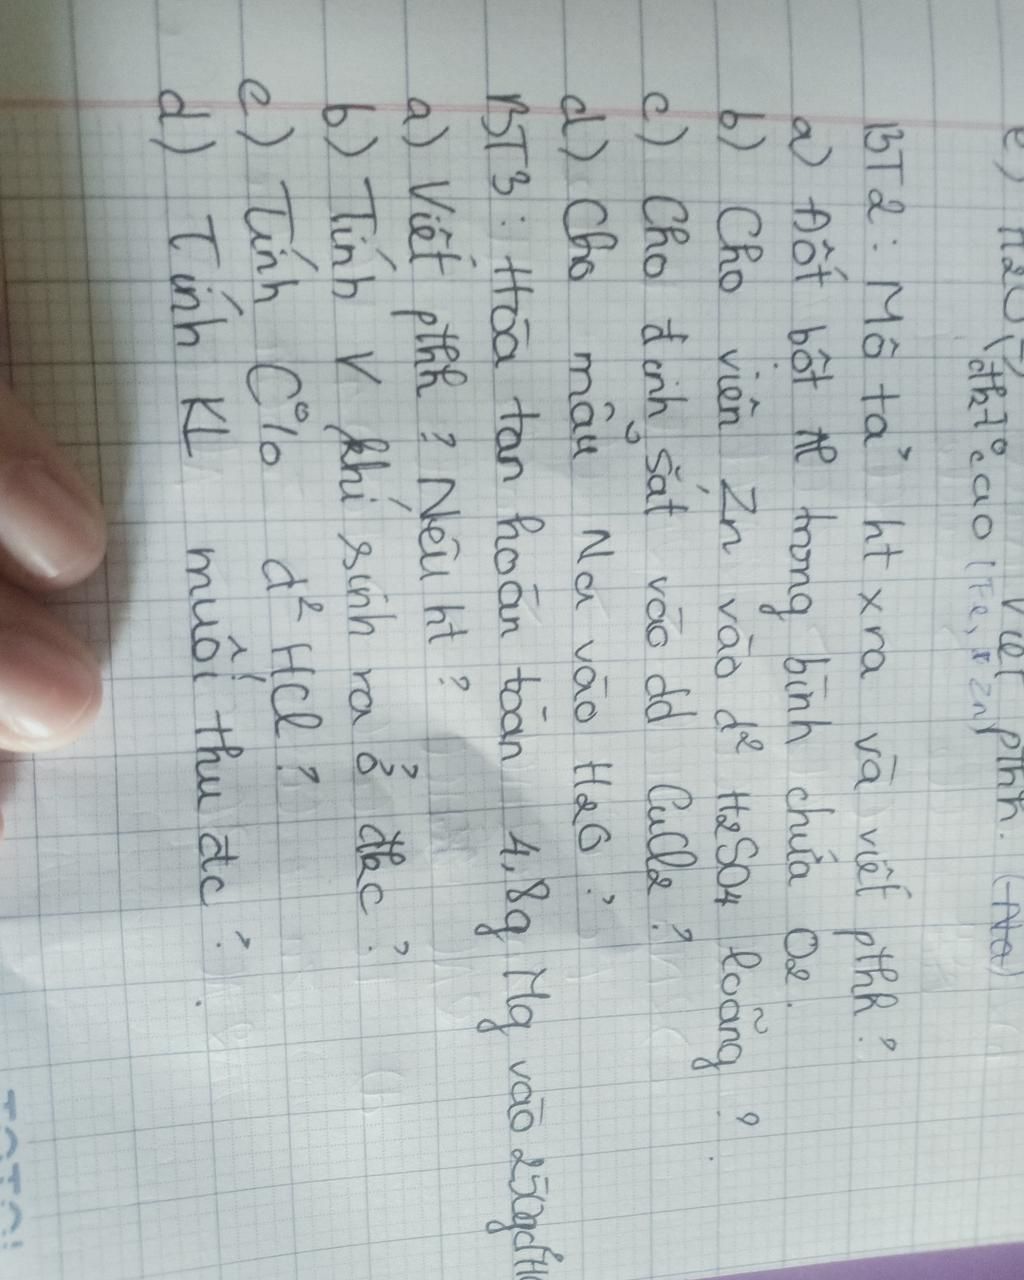 e) H2O
Viết pthh. (-Na)
đk t° cao (Fe, Zn)
BT2: Mô tả ht xra và viết pthh?
a) Đốt bột Al trong bình chứa O2.
b) Cho viên Zn vào d² H2SO4 loãng?
c) Cho đinh sắt vào dd CuCl2?
d) Cho mẩu Na vào H2O?
BT3: Hòa tan hoàn toàn 4,8g Mg vào 250g
a) Viết pthh? Nêu ht?
b) Tính V khí sinh ra ở đkc?
c) Tính C% d² HCl?
d) Tính KL muối thu đc?